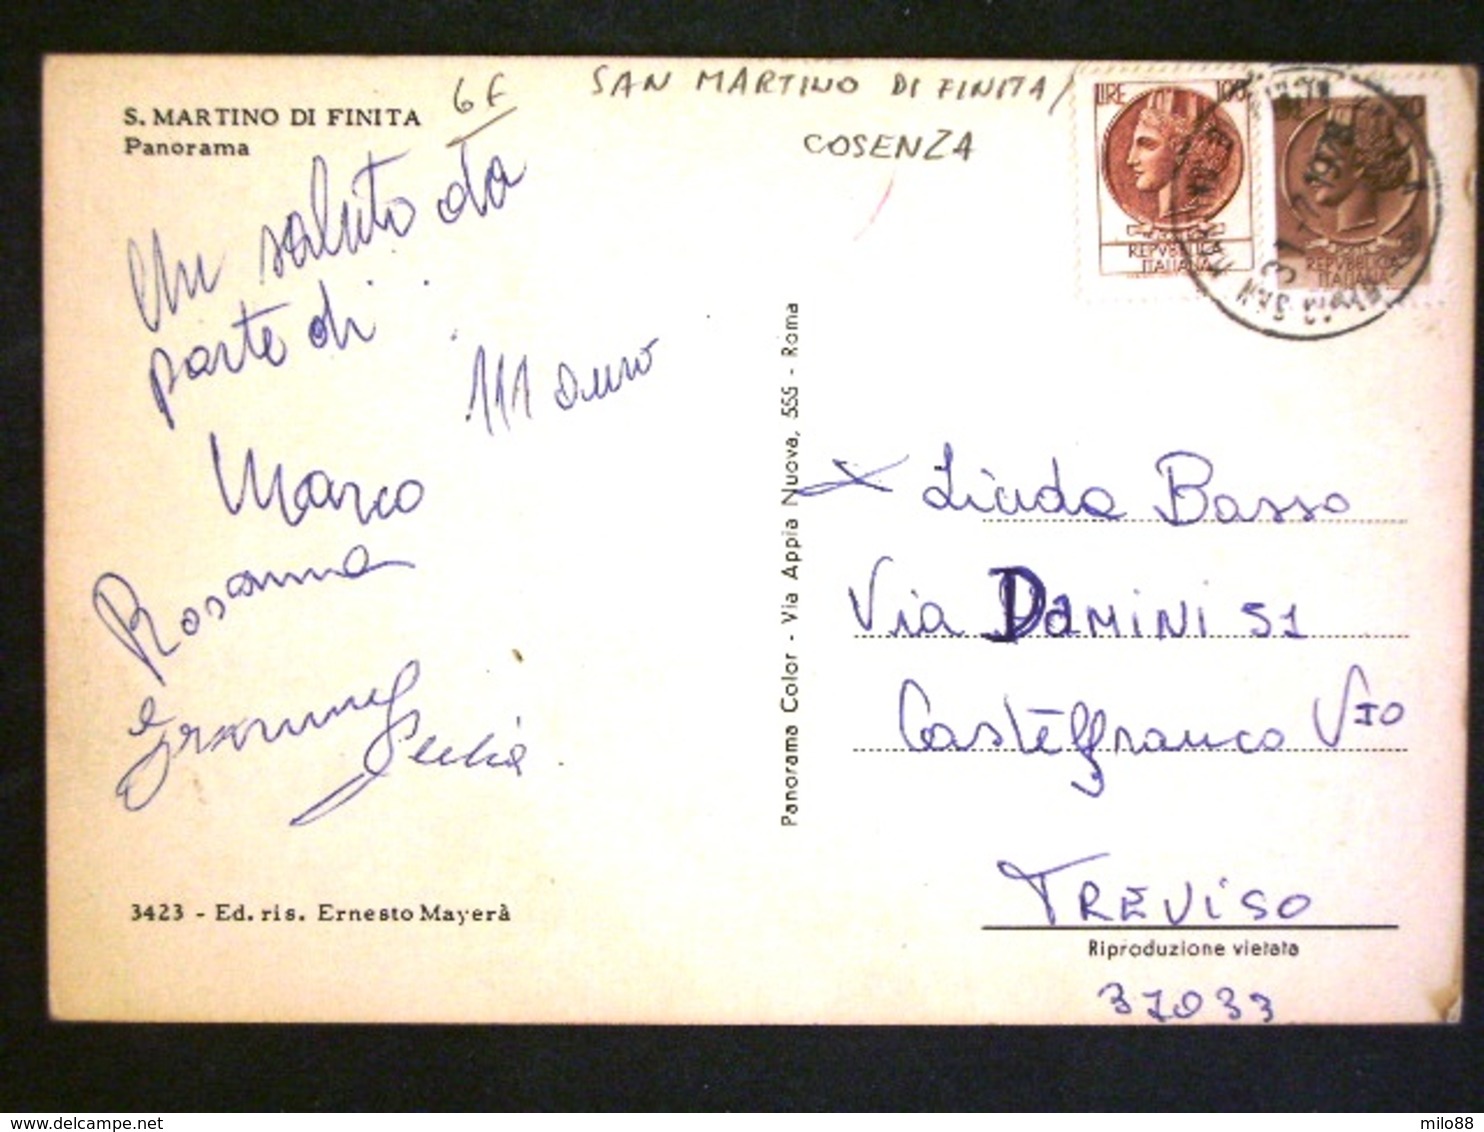 S. MARTINO DI FINITA
Panorama
6 E
SAN MARTINO DI FINITA/
COSENZA
LIRE 100
REPVBBLICA
ITALIANA
REPVBBLICA
ITALIANA
1978
Un saluto da
parte di
Marco
Rosanna
Panorama Color - Via Appia Nuova, 555 - Roma
Linda Basso
Via DAMINI 51
Castelfranco VTO
TREVISO
Riproduzione vietata
37033
3423 - Ed. ris. Ernesto Mayerà
milo88